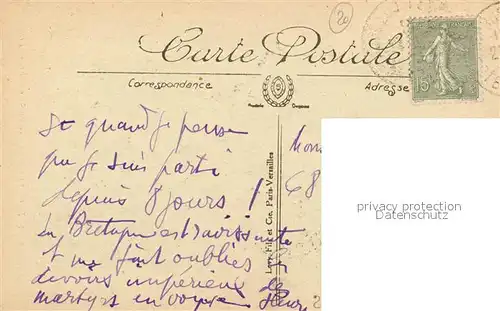 20
Carte Postale
Correspondance
Adresse
15
Et quand je pense
que je suis parti
depuis 8 jours !
La Bretagne est ravissante
et me fait oublier
devoirs impérieux de
martyrs en
Mon
68
Lévy Fils et Cie, Paris-Versailles
privacy protection
Datenschutz